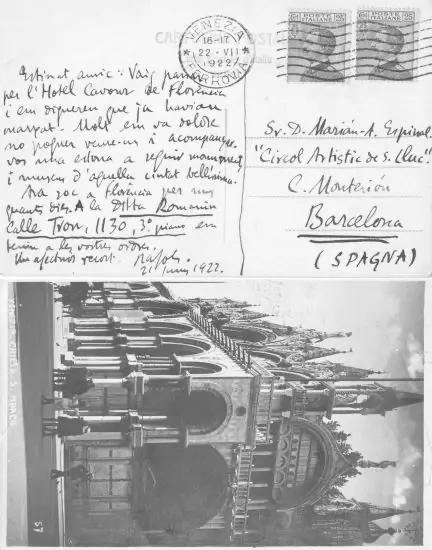 VENEZIA
16-17
22·VII
1922
FERROVIA
POSTE ITALIANE
POSTE ITALIANE
Estimat amic: Vaig passar
per l'Hotel Cavour de Florència
i em digueren que ja havien
marxat. Molt em va doldre
no poguer veure-us i acompanyar-
vos una estona a seguir monuments
i museus d'aquella ciutat bellíssima.
per uns
quants dies. A la Ditta Romanin
Calle Tron, 1130, 3º piano em
tenen a les vostres ordres.
Un afectuós record. Rafols.
21 juny 1922.
Sr. D. Marián-A. Espinal.
"Círcol Artístic de S. Lluc."
C. Montsión
Barcelona
(SPAGNA)
57